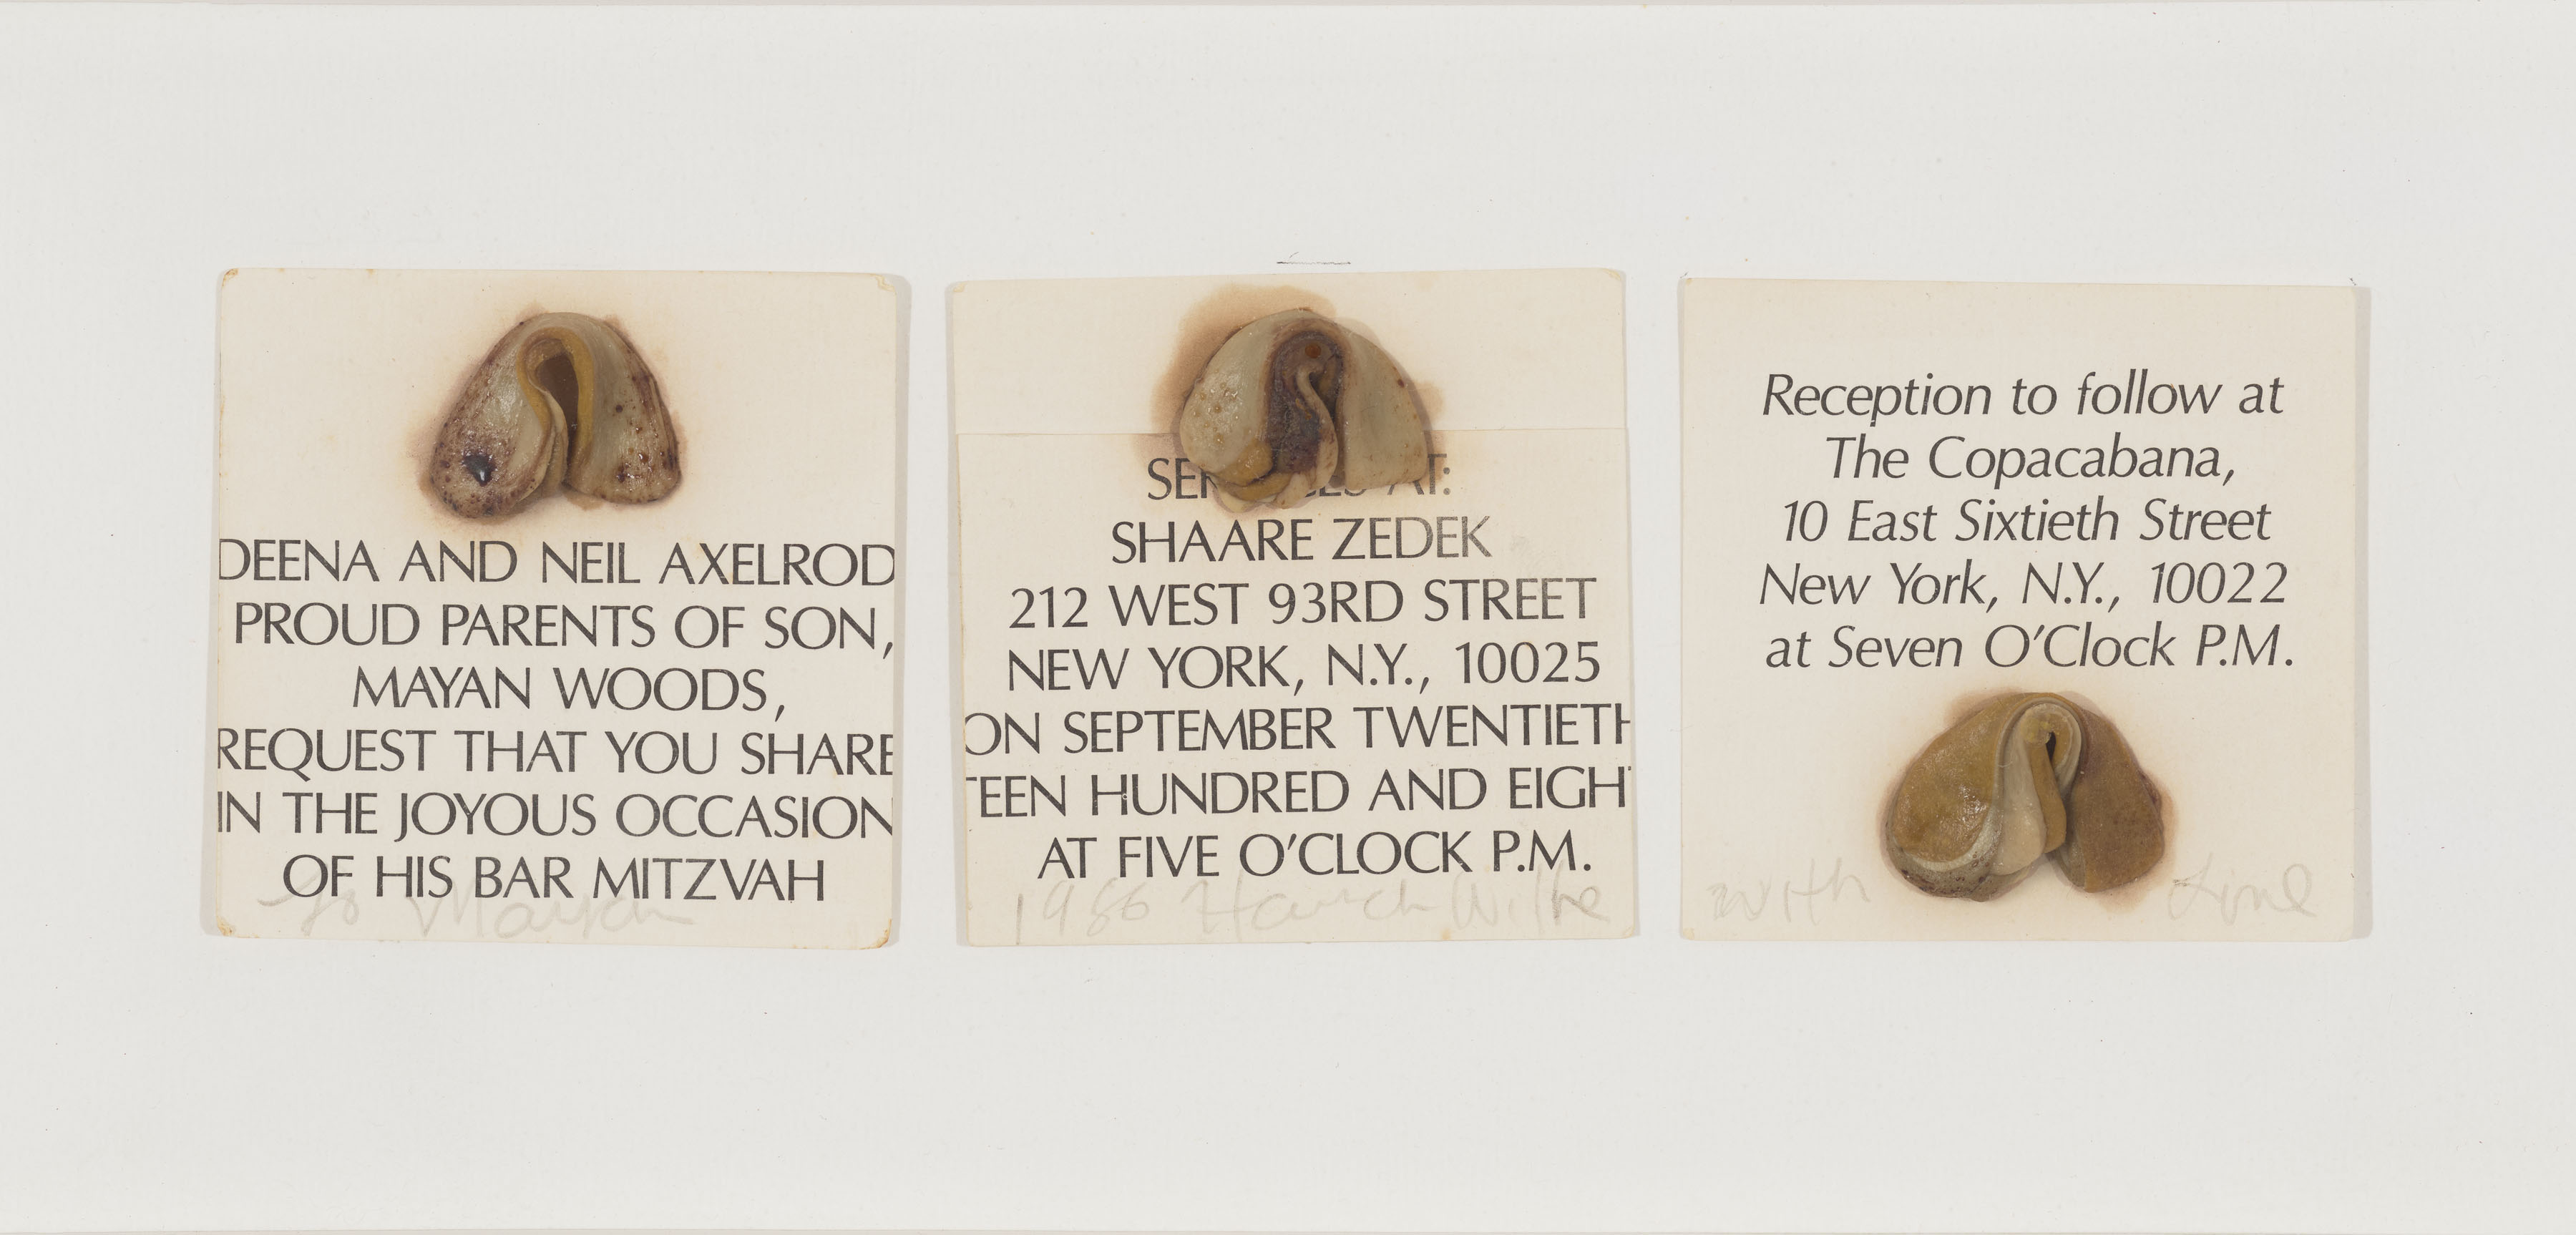 DEENA AND NEIL AXELROD
PROUD PARENTS OF SON,
MAYAN WOODS,
REQUEST THAT YOU SHARE
IN THE JOYOUS OCCASION
OF HIS BAR MITZVAH
To Mayan
AT:
SHAARE ZEDEK
212 WEST 93RD STREET
NEW YORK, N.Y., 10025
ON SEPTEMBER TWENTIETH
TEEN HUNDRED AND EIGHT
AT FIVE O'CLOCK P.M.
1986 Hannah Wilke
Reception to follow at
The Copacabana,
10 East Sixtieth Street
New York, N.Y., 10022
at Seven O'Clock P.M.
With Love